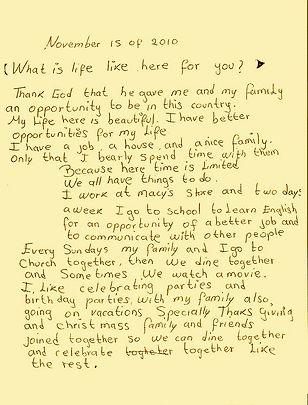 November 15 of 2010
(What is life like here for you?
Thank God that he gave me and my family
an opportunity to be in this country.
My Life here is beautiful. I have better
opportunities for my life
I have a job, a house, and a nice family.
Only that I bearly spend time with them
Because here time is Limited
We all have things to do.
I work at macy's store and two days
a week I go to school to Learn English
for an opportunity of a better job and
to communicate with other people
Every Sundays my family and I go to
Church together, then we dine together
and Sometimes We watch a movie.
I, Like celebrating parties and
birthday parties, with my family also,
going on vacations Specially Thaks Giving
and christmass family and friends
joined together so we can dine together
and celebrate togheter together Like
the rest.